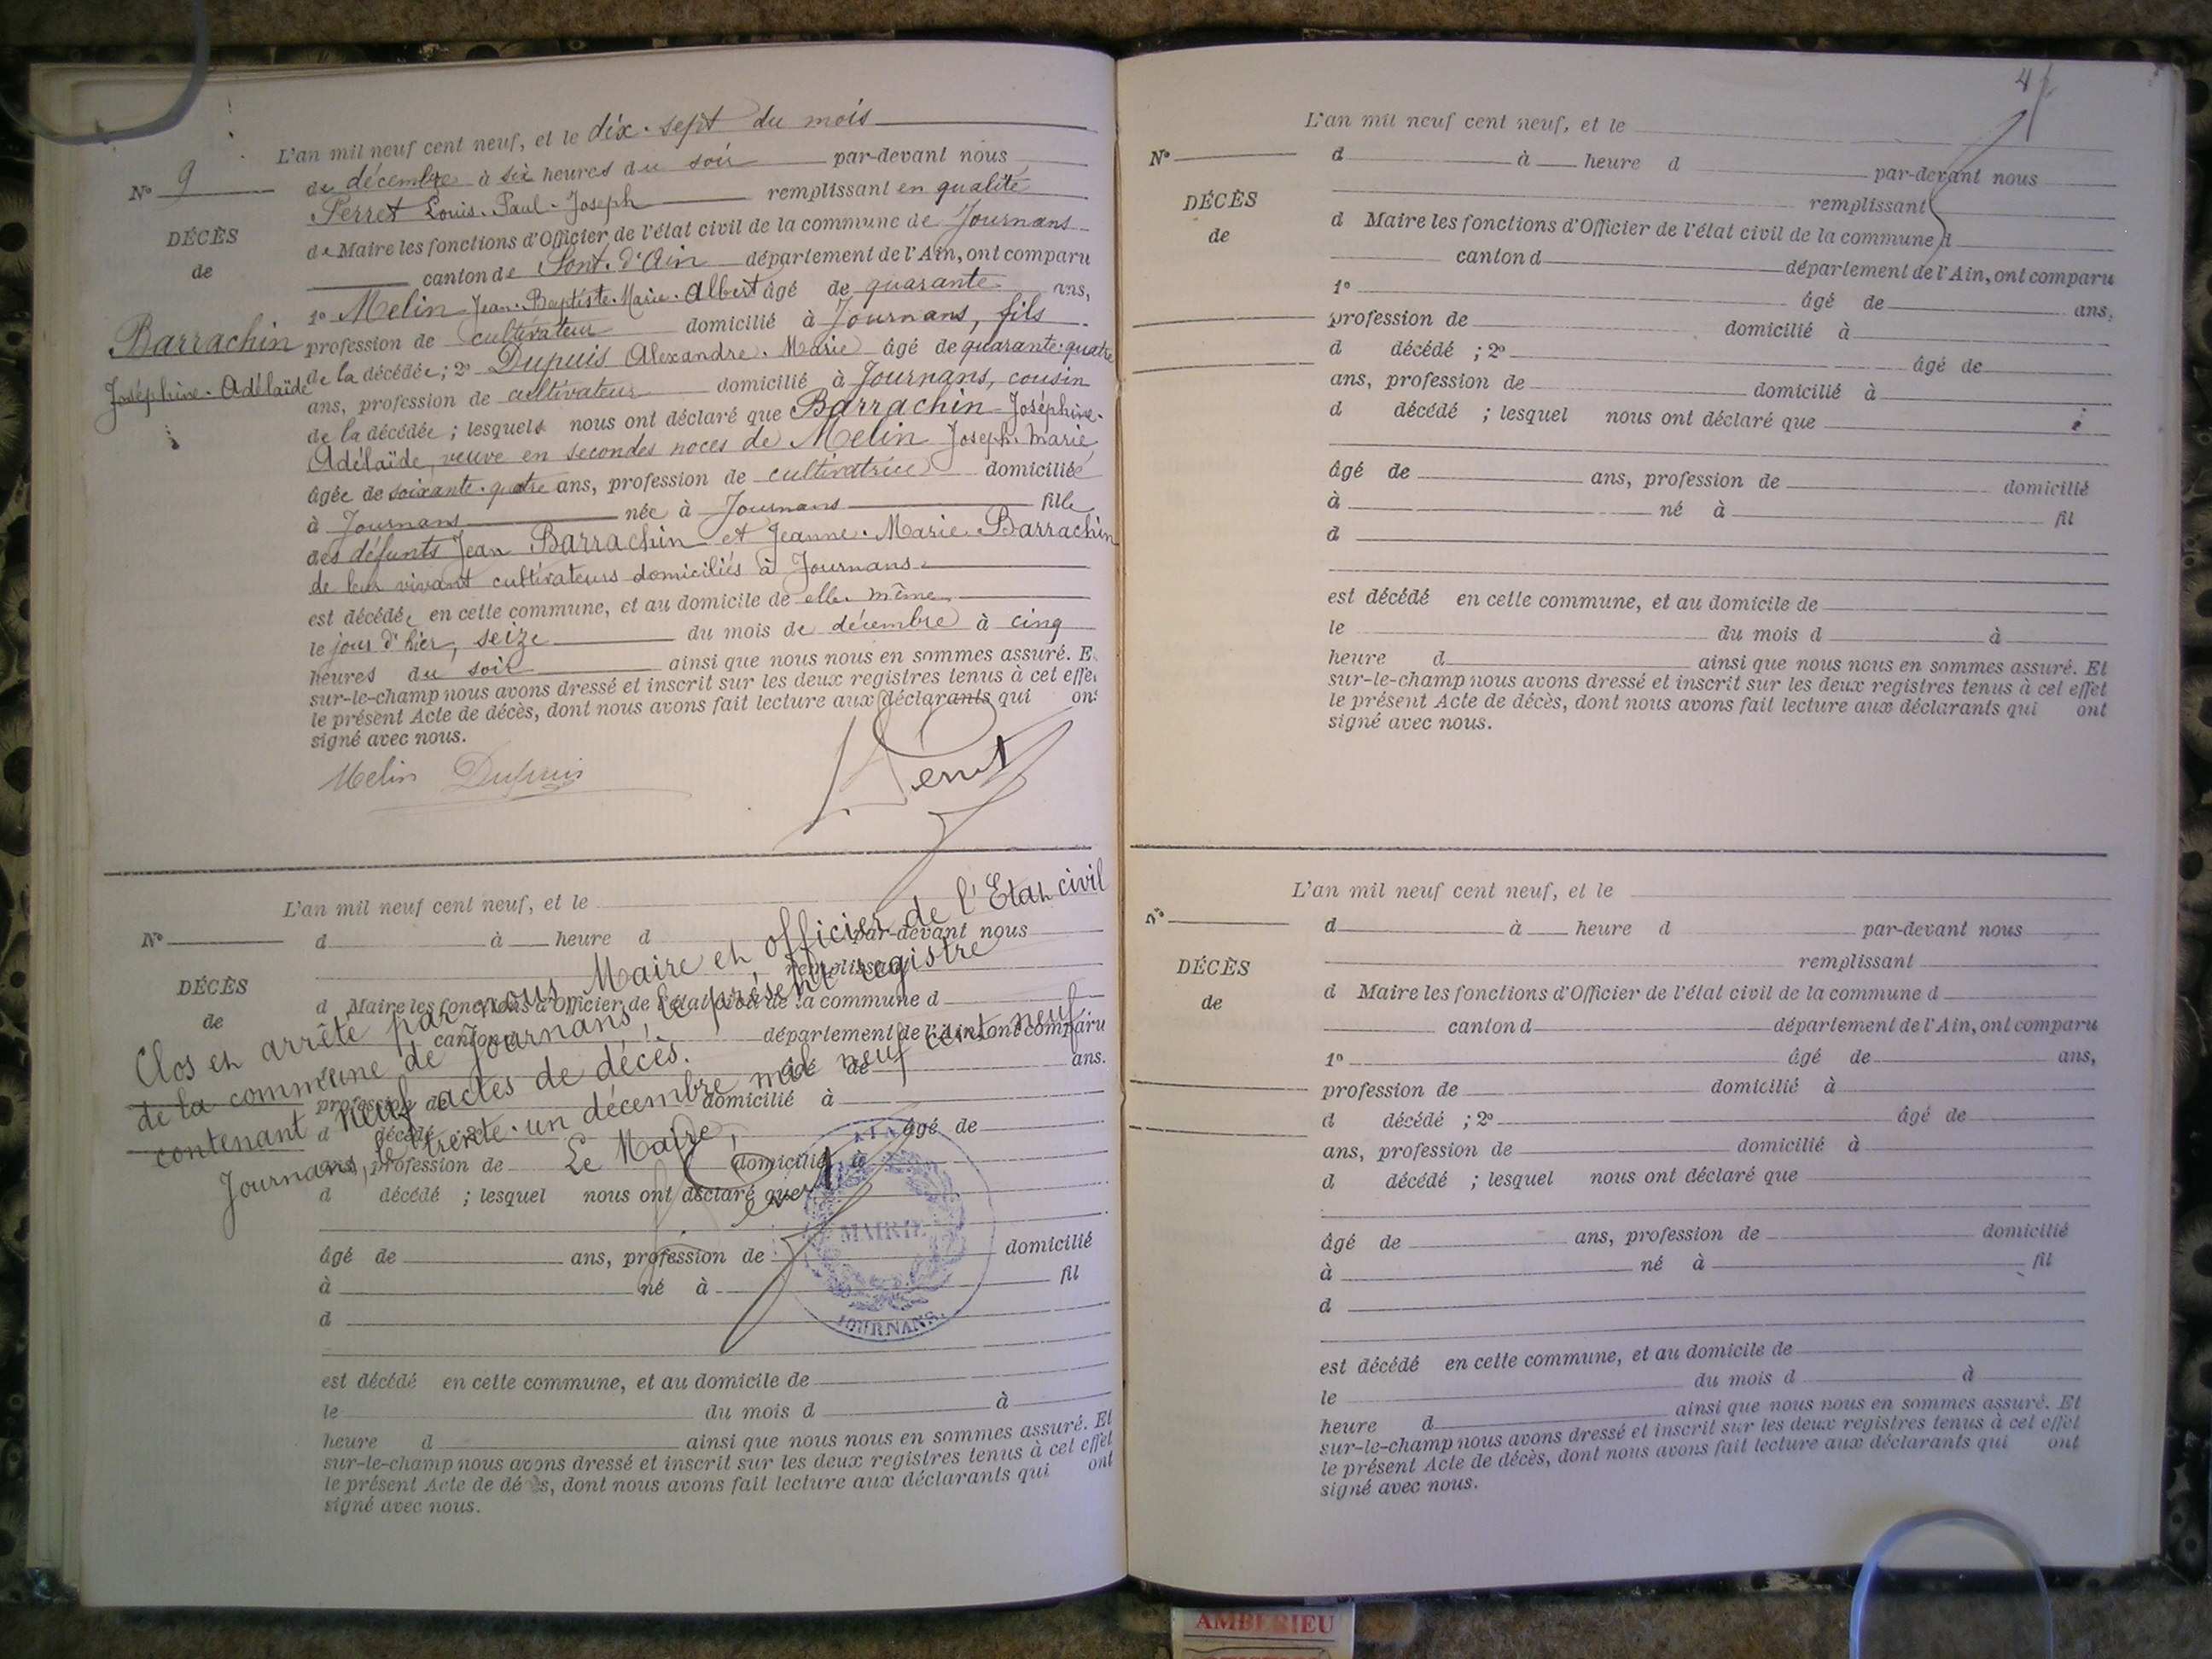 L'an mil neuf cent neuf, et le dix-sept du mois
N° 9
de décembre à six heures du soir par-devant nous
Perret Louis-Paul-Joseph remplissant en qualité
DÉCÈS
de
de Maire les fonctions d'Officier de l'état civil de la commune de Journans
canton de Pont-d'Ain département de l'Ain, ont comparu
1° Melin Jean-Baptiste-Marie-Albert âgé de quarante ans,
Barrachin
Joséphine-Adélaïde
profession de cultivateur domicilié à Journans, fils
de la décédée ; 2° Dupuis Alexandre-Marie âgé de quarante-quatre
ans, profession de cultivateur domicilié à Journans, cousin
de la décédée ; lesquels nous ont déclaré que Barrachin Joséphine-
Adélaïde, veuve en secondes noces de Melin Joseph-Marie
âgée de soixante-quatre ans, profession de cultivatrice domiciliée
à Journans née à Journans fille
des défunts Jean Barrachin et Jeanne-Marie Barrachin
de leur vivant cultivateurs domiciliés à Journans
est décédée en cette commune, et au domicile de elle-même
le jour d'hier, seize du mois de décembre à cinq
heures du soir ainsi que nous nous en sommes assuré. E
sur-le-champ nous avons dressé et inscrit sur les deux registres tenus à cet effe
le présent Acte de décès, dont nous avons fait lecture aux déclarants qui ont
signé avec nous.
Melin Dupuis Perret
L'an mil neuf cent neuf, et le
N°
d à heure d par-devant nous
remplissant
DÉCÈS
de
d Maire les fonctions d'Officier de l'état civil de la commune d
canton d département de l'Ain, ont comparu
1° âgé de ans.
profession de domicilié à
d décédé ; 2° âgé de
ans, profession de domicilié à
d décédé ; lesquel nous ont déclaré que
âgé de ans, profession de domicilié
à né à fil
d
est décédé en cette commune, et au domicile de
le du mois d à
heure d ainsi que nous nous en sommes assuré. Et
sur-le-champ nous avons dressé et inscrit sur les deux registres tenus à cet effet
le présent Acte de décès, dont nous avons fait lecture aux déclarants qui ont
signé avec nous.
Clos et arrêté par nous, Maire et officier de l'Etat civil
de la commune de Journans, le présent registre
contenant neuf actes de décès.
Journans, le trente-un décembre mil neuf cent neuf
Le Maire,
Perret
MAIRIE
JOURNANS
4
L'an mil neuf cent neuf, et le
N°
d à heure d par-devant nous
remplissant
DÉCÈS
de
d Maire les fonctions d'Officier de l'état civil de la commune d
canton d département de l'Ain, ont comparu
1° âgé de ans,
profession de domicilié à
d décédé ; 2° âgé de
ans, profession de domicilié à
d décédé ; lesquel nous ont déclaré que
âgé de ans, profession de domicilié
à né à fil
d
est décédé en cette commune, et au domicile de
le du mois d à
heure d ainsi que nous nous en sommes assuré. Et
sur-le-champ nous avons dressé et inscrit sur les deux registres tenus à cet effet
le présent Acte de décès, dont nous avons fait lecture aux déclarants qui ont
signé avec nous.
L'an mil neuf cent neuf, et le
N°
d à heure d par-devant nous
remplissant
DÉCÈS
de
d Maire les fonctions d'Officier de l'état civil de la commune d
canton d département de l'Ain, ont comparu
1° âgé de ans,
profession de domicilié à
d décédé ; 2° âgé de
ans, profession de domicilié à
d décédé ; lesquel nous ont déclaré que
âgé de ans, profession de domicilié
à né à fil
d
est décédé en cette commune, et au domicile de
le du mois d à
heure d ainsi que nous nous en sommes assuré. Et
sur-le-champ nous avons dressé et inscrit sur les deux registres tenus à cet effet
le présent Acte de décès, dont nous avons fait lecture aux déclarants qui ont
signé avec nous.
AMBERIEU